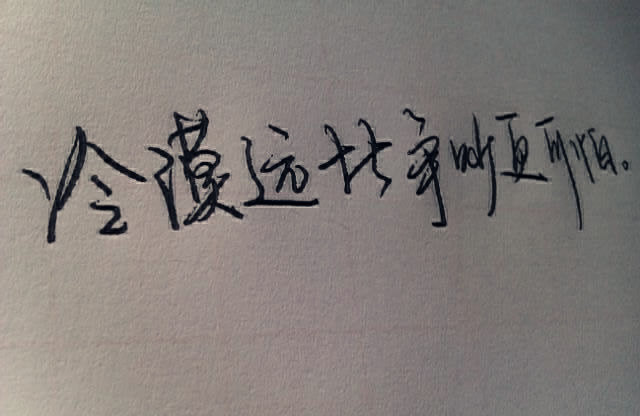 冷漠远比争吵更可怕。